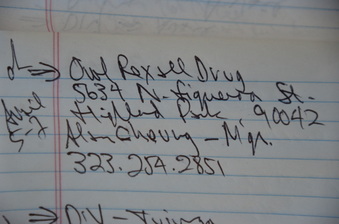 Owl Rexall Drug
5634 N. Figueroa St.
Highland Park, 90042
Alan Cheung - Mgr.
323.254.2851
DIV -